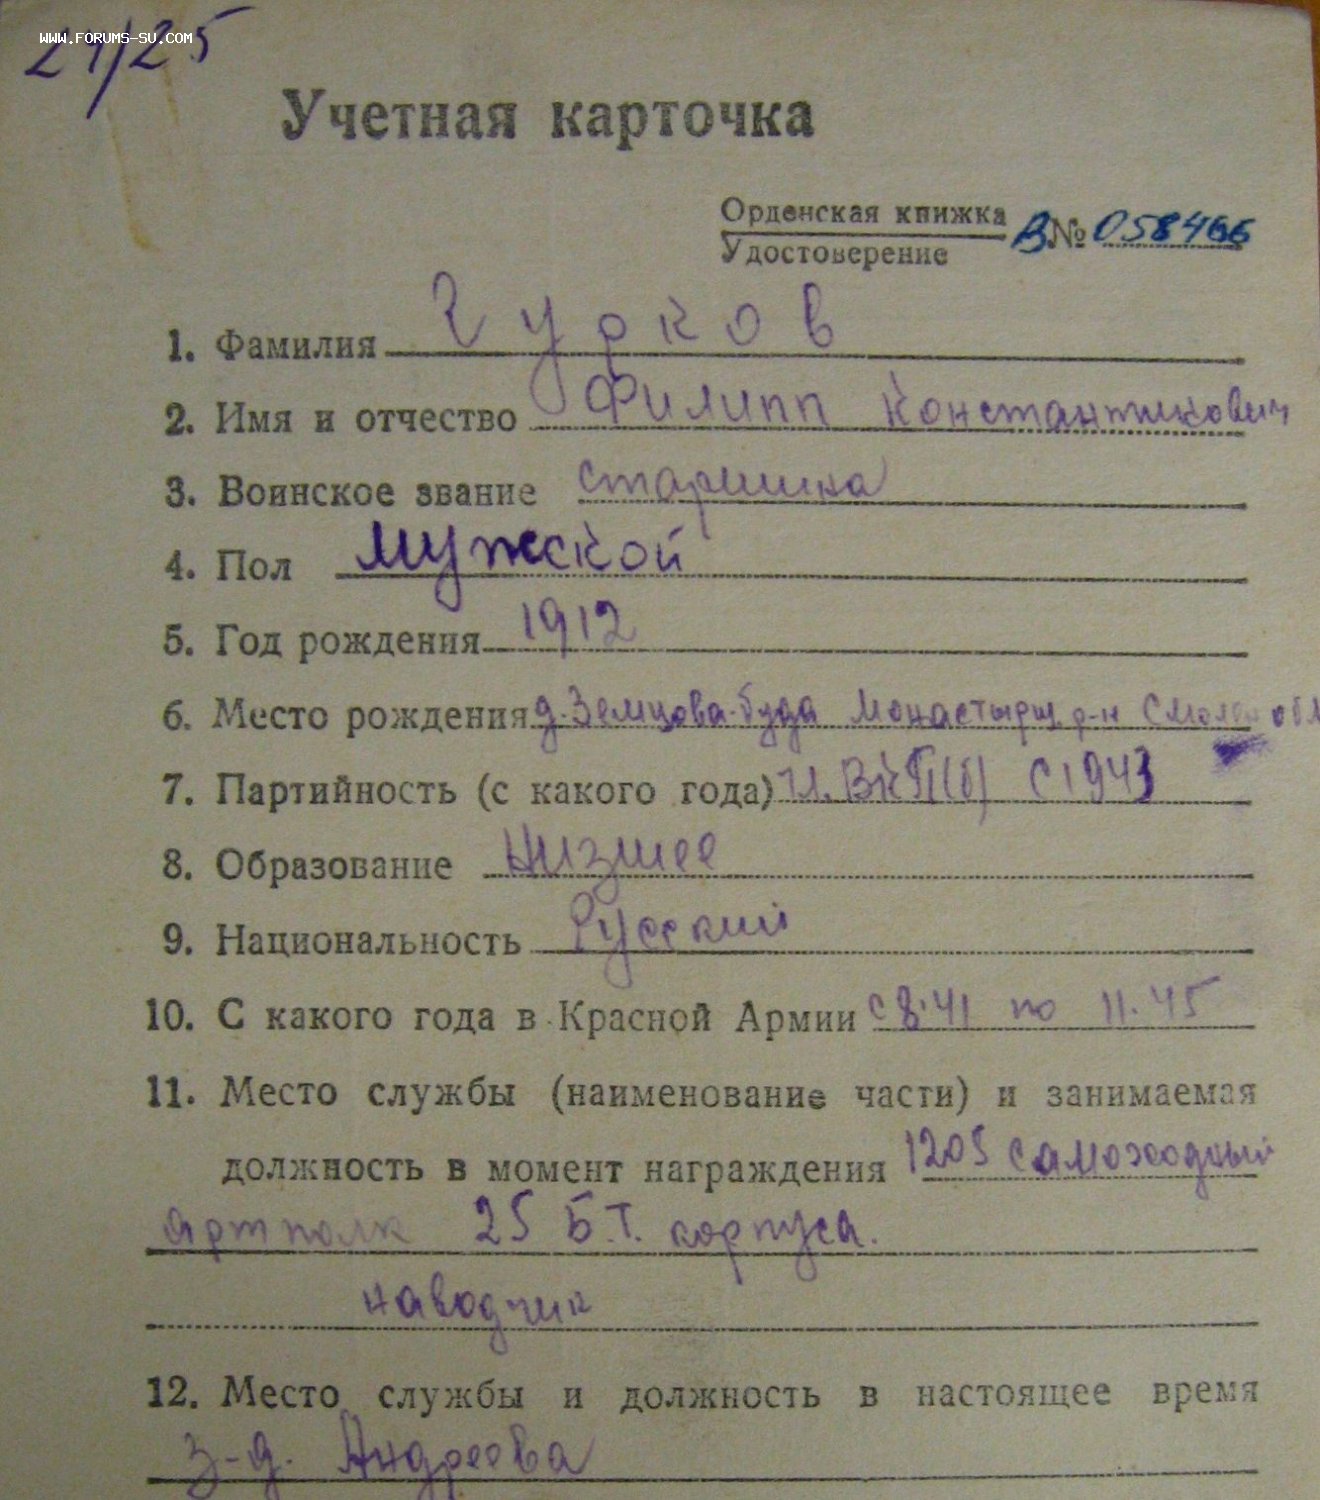 www.forums-su.com
21/25
Учетная карточка
Орденская книжка
Удостоверение
В № 058466
1. Фамилия Гурков
2. Имя и отчество Филипп Константинович
3. Воинское звание старшина
4. Пол мужской
5. Год рождения 1912
6. Место рождения д. Земцова-буда Монастырщ. р-н Смолен обл
7. Партийность (с какого года) чл. ВКП(б) с 1943
8. Образование Низшее
9. Национальность Русский
10. С какого года в Красной Армии с 8.41 по 11.45
11. Место службы (наименование части) и занимаемая
должность в момент награждения 1205 самоходный
артполк 25 Б.Т. корпуса.
наводчик
12. Место службы и должность в настоящее время
з-д. Андреева